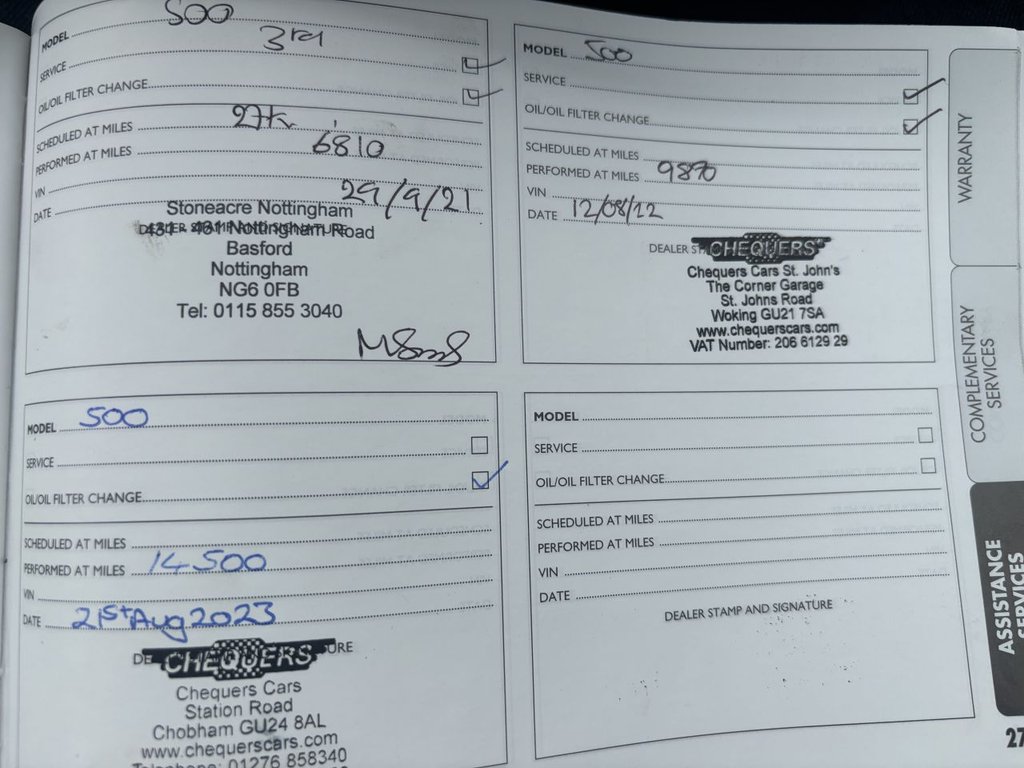 MODEL 500
3rd
SERVICE
OIL/OIL FILTER CHANGE
SCHEDULED AT MILES 27k
PERFORMED AT MILES 6810
VIN
DATE 29/9/21
DEALER STAMP AND SIGNATURE
Stoneacre Nottingham
431 - 461 Nottingham Road
Basford
Nottingham
NG6 0FB
Tel: 0115 855 3040
MODEL 500
SERVICE
OIL/OIL FILTER CHANGE
SCHEDULED AT MILES
PERFORMED AT MILES 9870
VIN
DATE 12/08/22
DEALER
CHEQUERS
Chequers Cars St. John's
The Corner Garage
St. Johns Road
Woking GU21 7SA
www.chequerscars.com
VAT Number: 206 6129 29
MODEL 500
SERVICE
OIL/OIL FILTER CHANGE
SCHEDULED AT MILES
PERFORMED AT MILES 14500
VIN
DATE 21st Aug 2023
CHEQUERS
Chequers Cars
Station Road
Chobham GU24 8AL
www.chequerscars.com
Telephone: 01276 858340
MODEL
SERVICE
OIL/OIL FILTER CHANGE
SCHEDULED AT MILES
PERFORMED AT MILES
VIN
DATE
DEALER STAMP AND SIGNATURE
WARRANTY
COMPLEMENTARY
SERVICES
ASSISTANCE
SERVICES
27